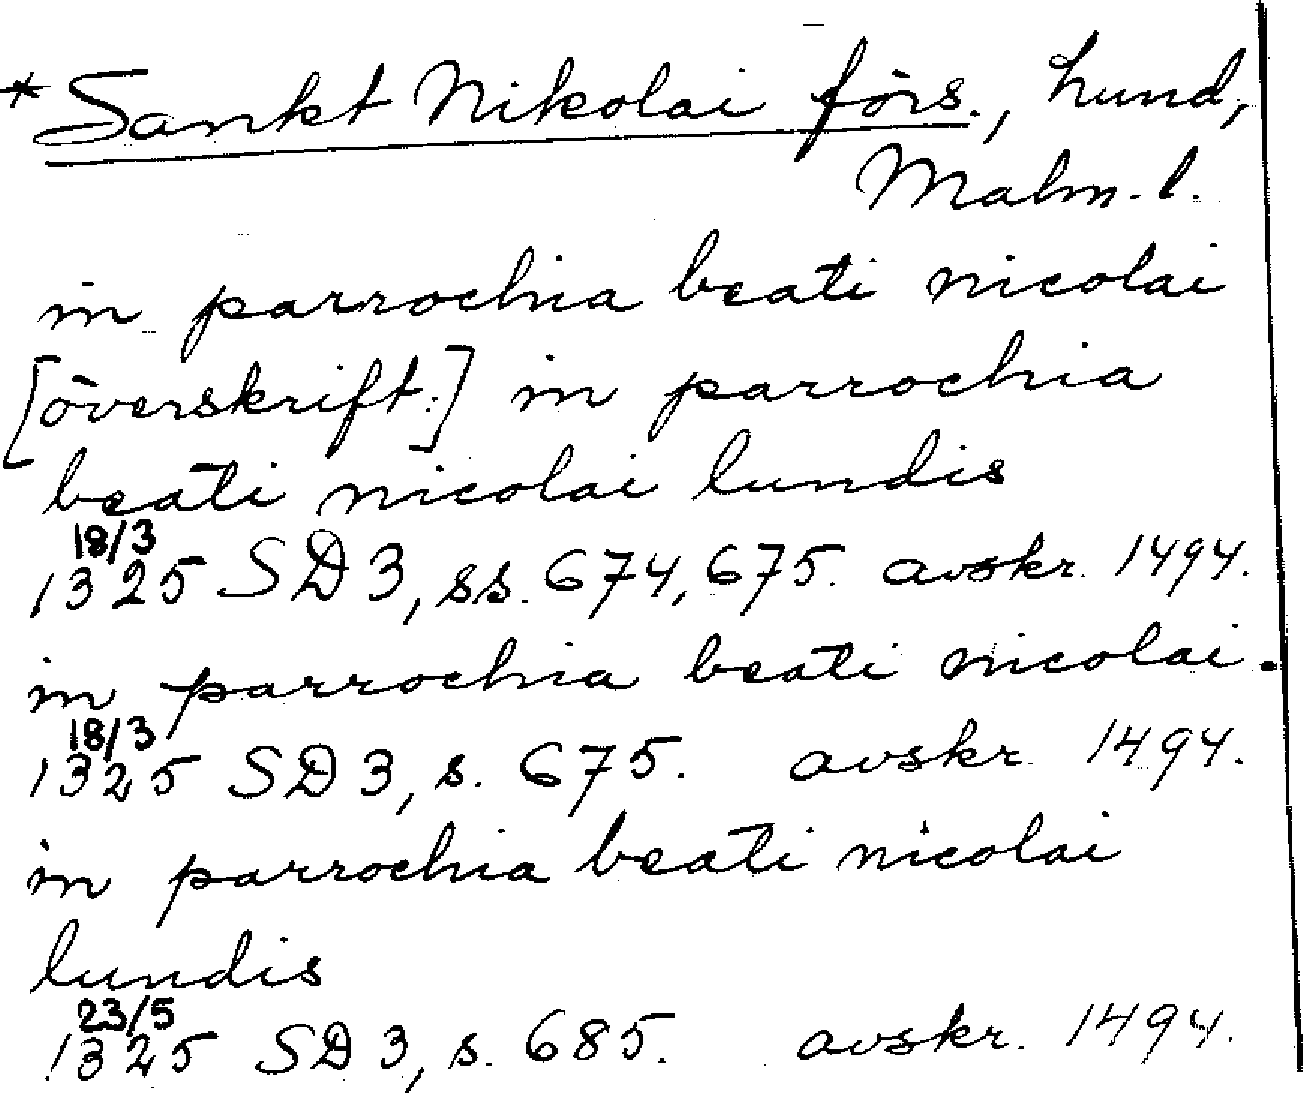 *Sankt Nikolai förs., Lund,
Malm. l.
in parrochia beati nicolai
[överskift.] in parrochia
beati nicolai lundis
18/3
1325 SD 3, ss. 674, 675. avskr. 1494.
in parrochia beati nicolai.
18/3
1325 SD 3, s. 675. avskr. 1494.
in parrochia beati nicolai
lundis
23/5
1325 SD 3, s. 685. avskr. 1494.